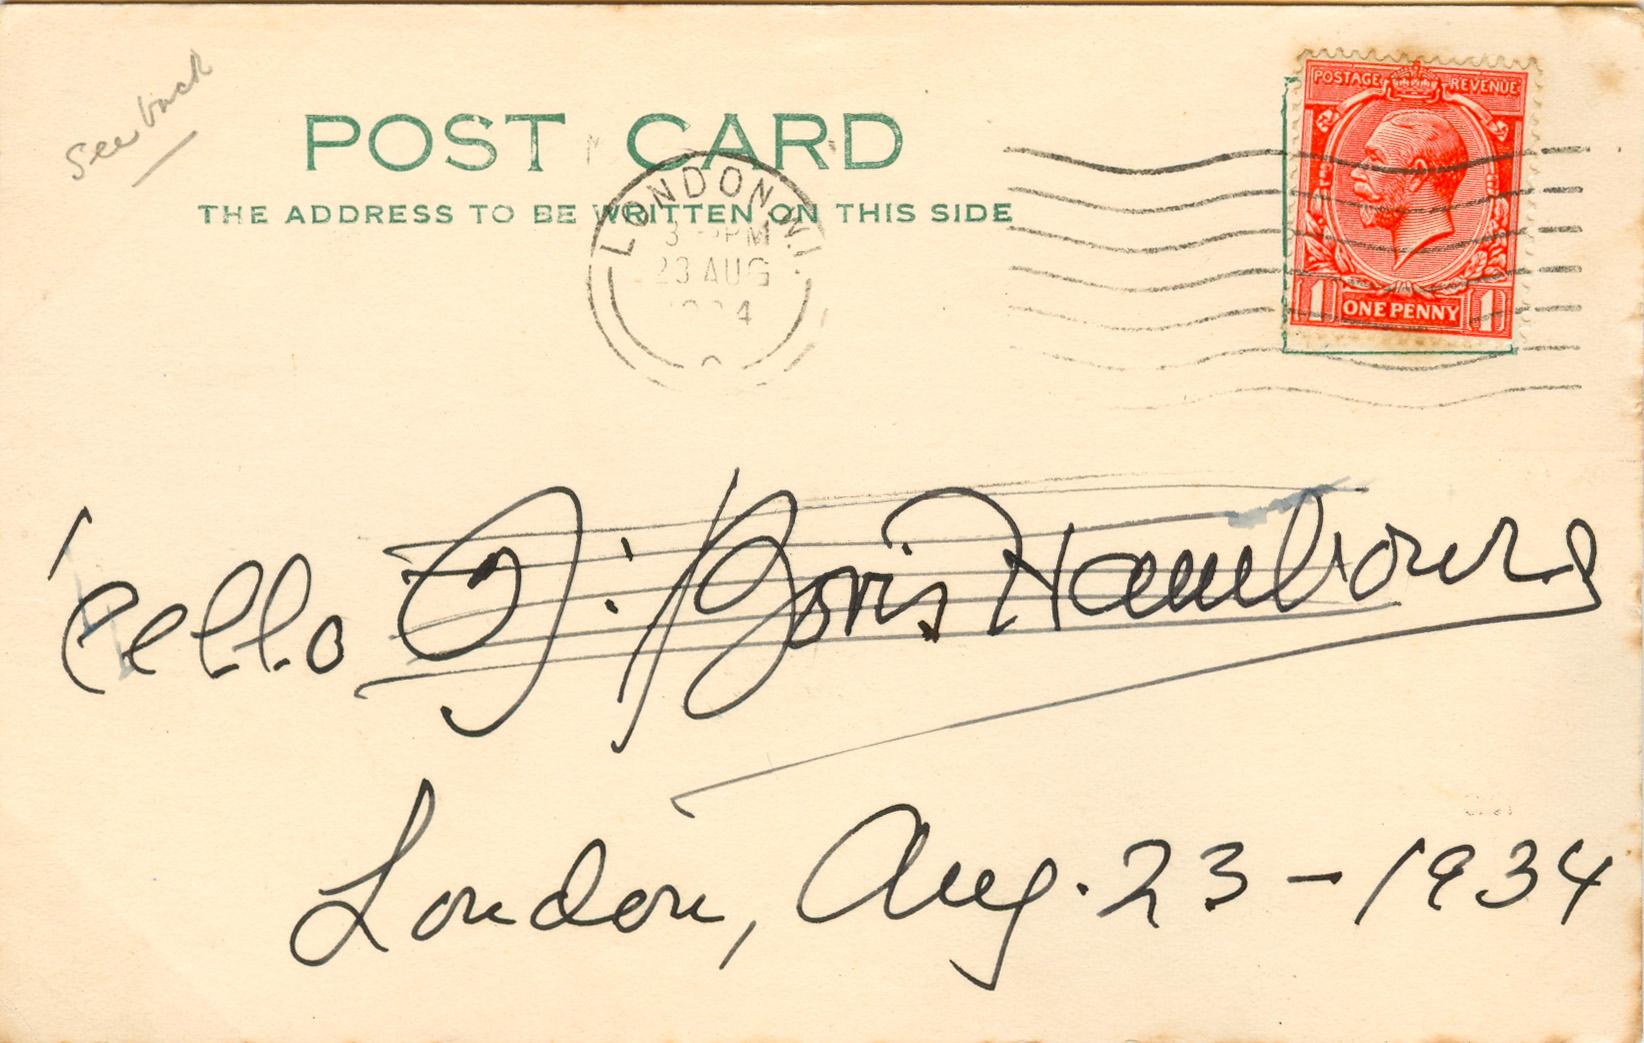 See back
POST CARD
THE ADDRESS TO BE WRITTEN ON THIS SIDE
LONDON.W.1
PM
23 AUG
4
POSTAGE REVENUE
1 ONE PENNY 1
'Cello Boris Hambourg
London, Aug. 23 - 1934